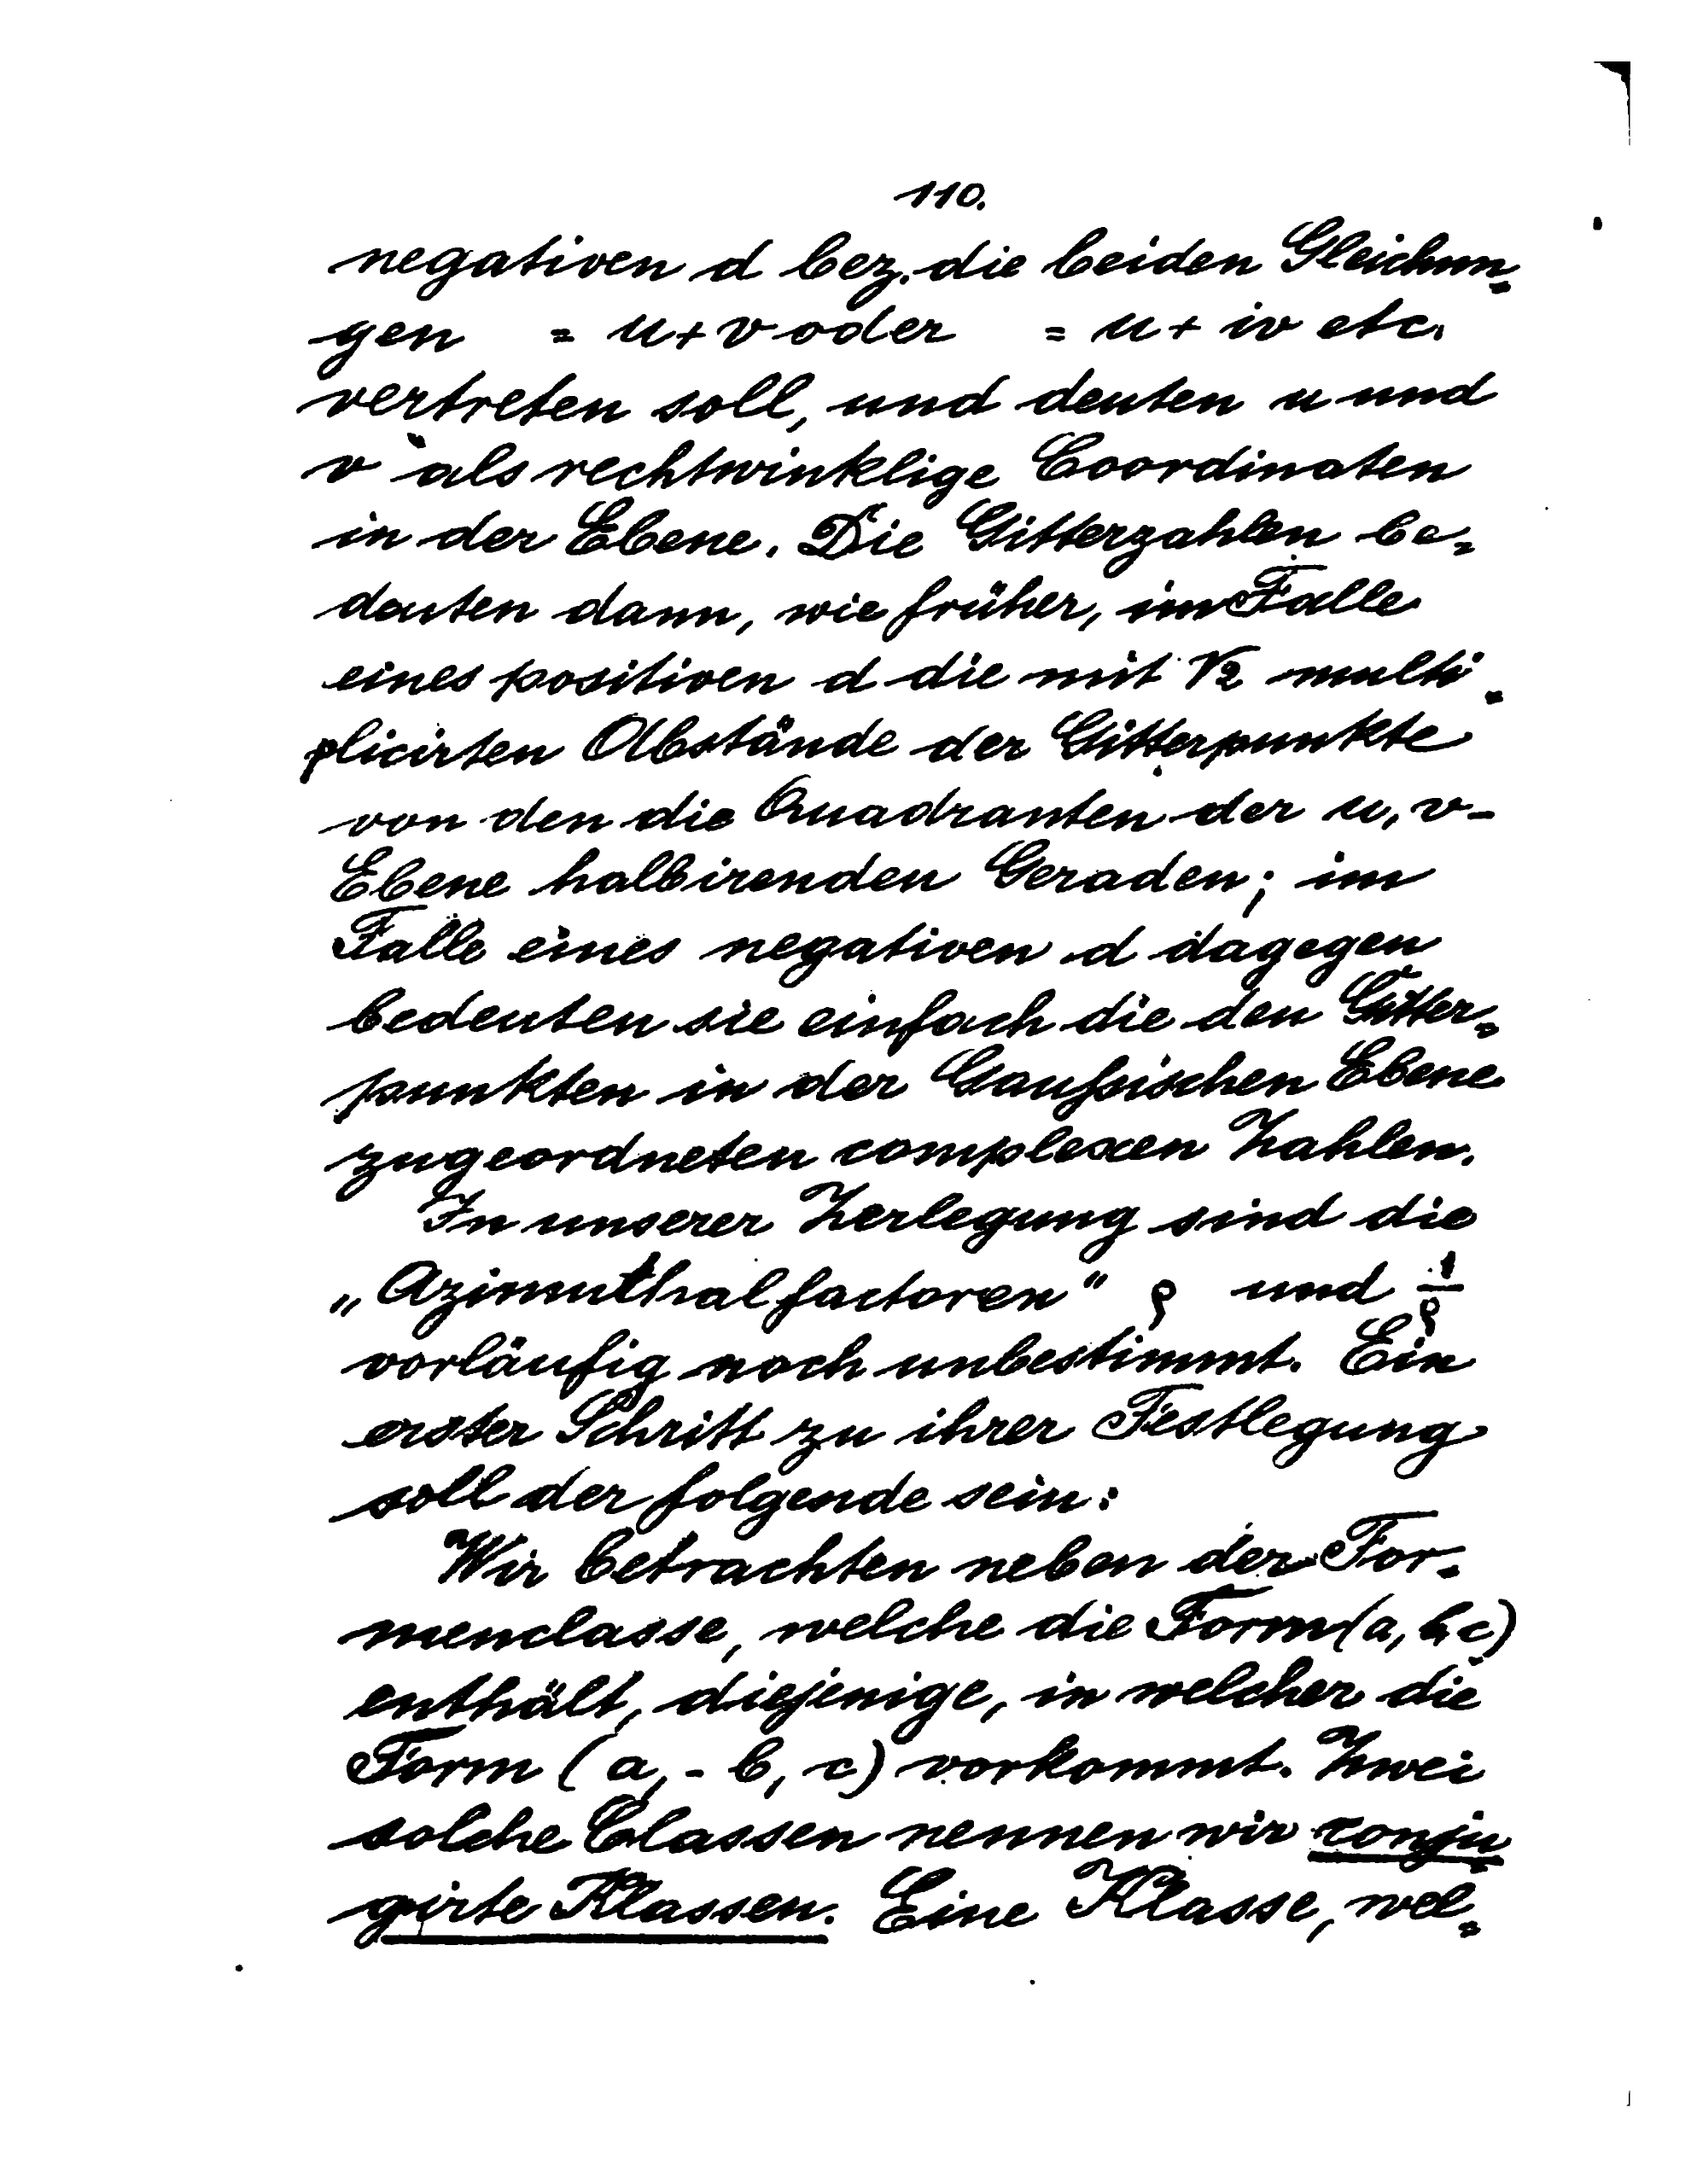 110.
negativen d bez. die beiden Gleichun-
gen = u + v oder = u + iv etc.
vertreten soll, und deuten u und
v als rechtwinklige Coordinaten
in der Ebene. Die Gitterzahlen be-
deuten dann, wie früher, im Falle
eines positiven d die mit √2 multi-
plicirten Abstände der Gitterpunkte
von den die Quadranten der u, v-
Ebene halbirenden Geraden; im
Falle eines negativen d dagegen
bedeuten sie einfach die den Gitter-
punkten in der Gaußischen Ebene
zugeordneten complexen Zahlen.
In unserer Zerlegung sind die
„Azimuthalfactoren“ ρ und 1/ρ
vorläufig noch unbestimmt. Ein
erster Schritt zu ihrer Festlegung
soll der folgende sein:
Wir betrachten neben der For-
menclasse, welche die Form (a, b, c)
enthält, diejenige, in welcher die
Form (a, - b, c) vorkommt. Zwei
solche Classen nennen wir conju-
girte Klassen. Eine Klasse, wel-